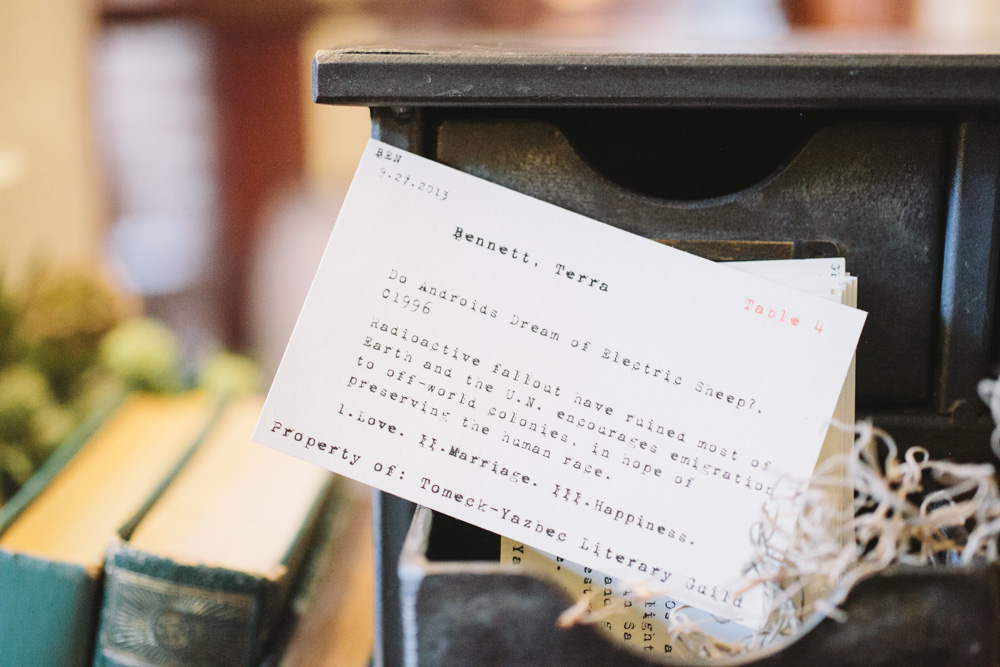 BEN
9.27.2013
Bennett, Terra
Table 4
Do Androids Dream of Electric Sheep?.
C1996
Radioactive fallout have ruined most of
Earth and the U.N. encourages emigration
to off-world colonies, in hope of
preserving the human race.
1.Love. II.Marriage. III.Happiness.
Property of: Tomeck-Yazbec Literary Guild